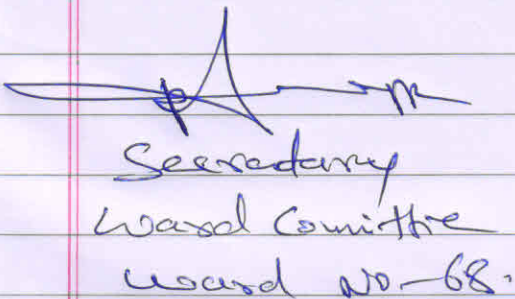 Secradary
Ward Comitthe
Ward NO-68.